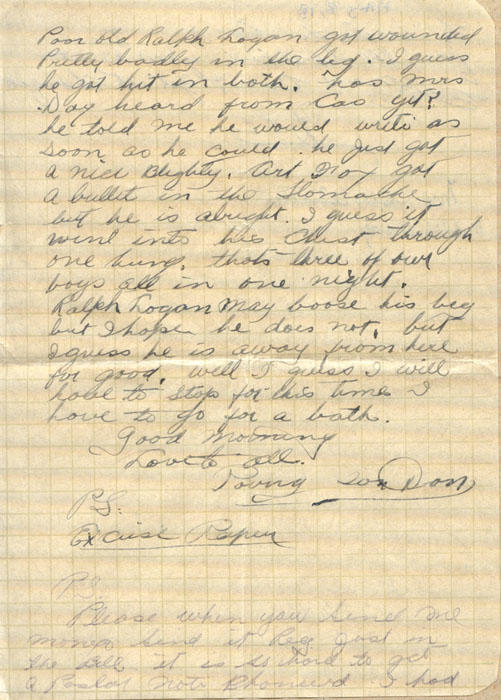 Poor old Ralph Logan got wounded
Pretty badly in the leg. I guess
he got hit in both. has Mrs
Day heard from Cas yet?
he told me he would write as
soon as he could. he Just got
a nice Blighty. Art Troy got
a bullet in the Stomache
but he is alright. I guess it
went into his Chest through
one lung. thats three of our
boys all in one night.
Ralph Logan May loose his leg
but I hope he does not. but
I guess he is away from here
for good. well I guess I will
have to Stop for this time I
have to go for a bath.
Good Morning
Love to all.
Loving Son Don
P.S.
Excuse Paper
P.S.
Please when you Send me
money Send it Reg Just in
the Bill it is so hard to get
a Postal note I had